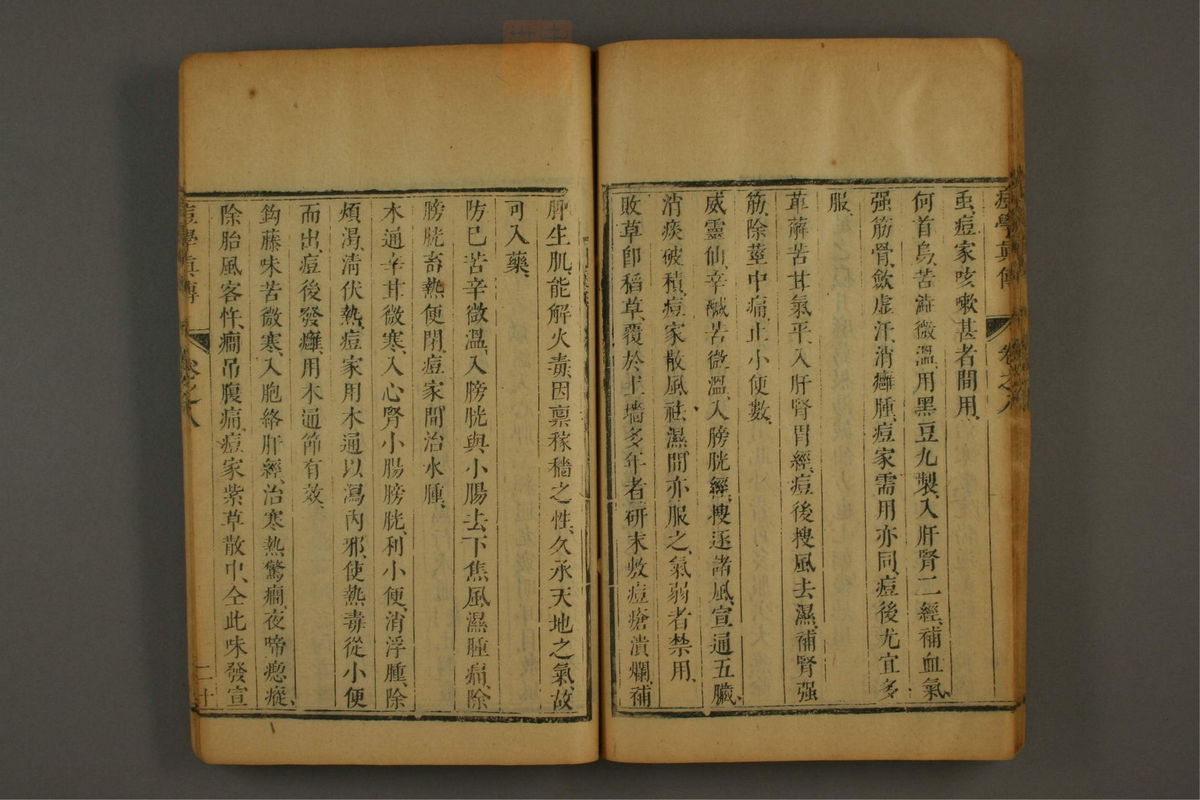 痘學眞傳 卷之八
虱、痘家咳嗽甚者間用、
何首烏、苦澁微溫、用黑豆九製、入肝腎二經、補血氣
强筋骨、歛虛汗、消癰腫、痘家需用亦同、痘後尤宜多
服、
萆薢苦甘氣平、入肝腎胃經、痘後搜風去濕、補腎强
筋、除莖中痛、止小便數、
威靈仙、辛鹹苦微溫、入膀胱經、搜逐諸風、宣通五臟、
消痰破積、痘家散風祛濕、間亦服之、氣弱者禁用、
敗草卽稻草、覆於土墻多年者、硏末敷痘瘡潰爛、補
脾生肌、能解火毒、因禀稼穡之性、久承天地之氣、故
可入藥、
防已苦辛微溫、入膀胱與小腸、去下焦風濕腫痛、除
膀胱畜熱便閉、痘家間治水腫、
木通辛甘微寒、入心腎小腸膀胱、利小便、消浮腫、除
煩渴、淸伏熱、痘家用木通以瀉內邪、使熱毒從小便
而出、痘後發癰、用木通節有效、
鈎藤味苦微寒、入胞絡肝經、治寒熱驚癎、夜啼瘛瘲、
除胎風客忤、癎吊腹痛、痘家紫草散中、仝此味發宣
痘學眞傳 卷之八 二十